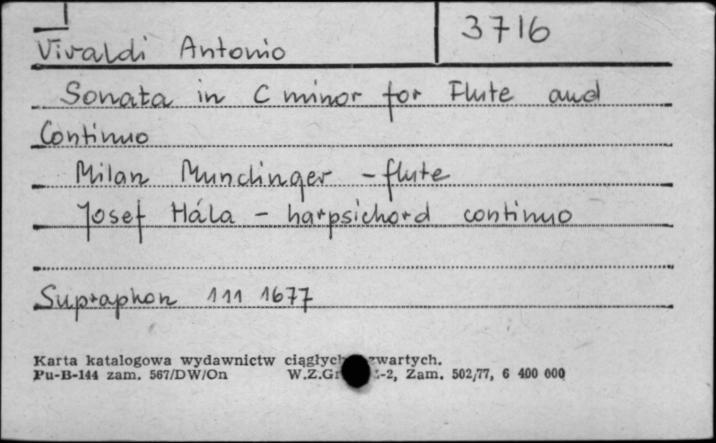 3716
Vivaldi Antonio
Sonata in C minor for Flute and
Continuo
Milan Munclinger - flute
Josef Hála - harpsichord continuo
Supraphon 111 1677
Karta katalogowa wydawnictw ciągłych zwartych.
Pu-B-144 zam. 567/DW/On W.Z.Gr -2, Zam. 502/77, 6 400 000